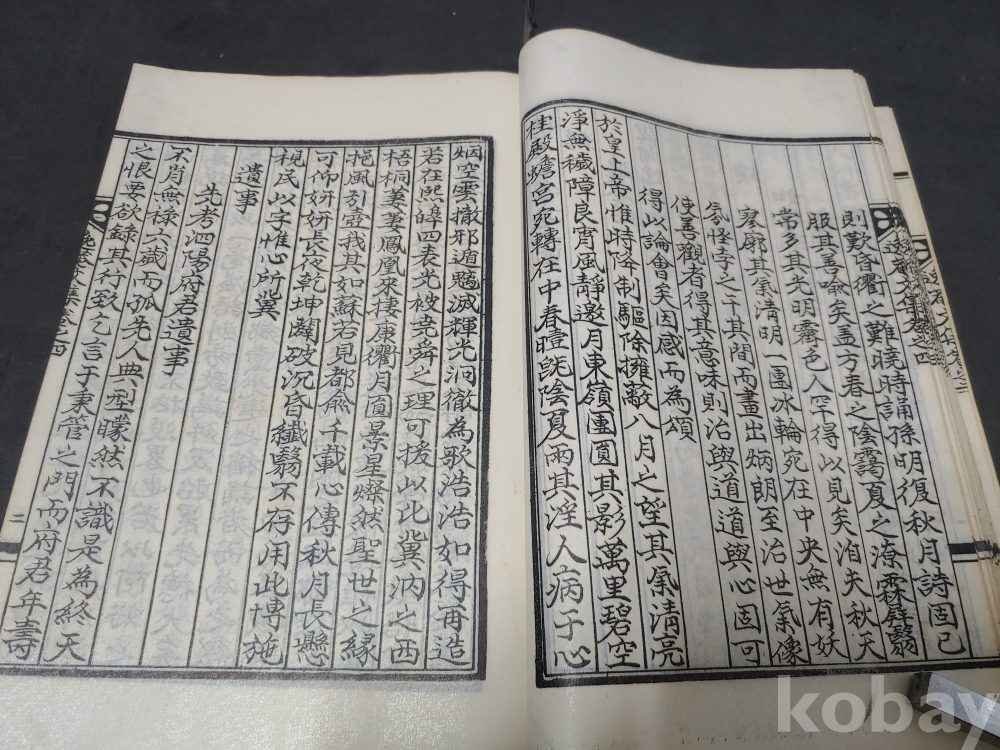 則歎昏衢之難曉時誦孫明復秋月詩固已
服其善喩矣盖方春之陰靄夏之潦霖屛翳
常多其光明霽色人罕得以見矣洎夫秋天
寥廓其氣淸明一團冰輪宛在中央無有妖
氛怪孛之干其間而畫出炳朗至治世氣像
使善觀者得其意味則治與道道與心固可
得以論會矣因感而為頌
於皇上帝惟時降制驅除擁蔽八月之望其氣淸亮
淨無穢障良宵風靜邀月東嶺團圓其影萬里碧空
桂殿蟾宮宛轉在中春曀旣陰夏雨其淫人病于心
烟空雲撤邪遁魑滅輝光洞徹為歌浩浩如得再造
若在熙皡四表光被堯舜之理可援以比冀汭之西
梧桐萋萋鳳凰來棲康衢月圓景星燦然聖世之緣
挹風刜壺我其如蘇若見都兪千載心傳秋月長懸
可仰姸姸長夜乾坤闢破沉昏纖翳不存用此博施
柷民以字惟心所冀
遺事
先考泗陽府君遺事
不肖無祿六歲而孤先人典型矇然不識是為終天
之恨要欲錄其行致乞言于秉管之門而府君年壽
二
kobay